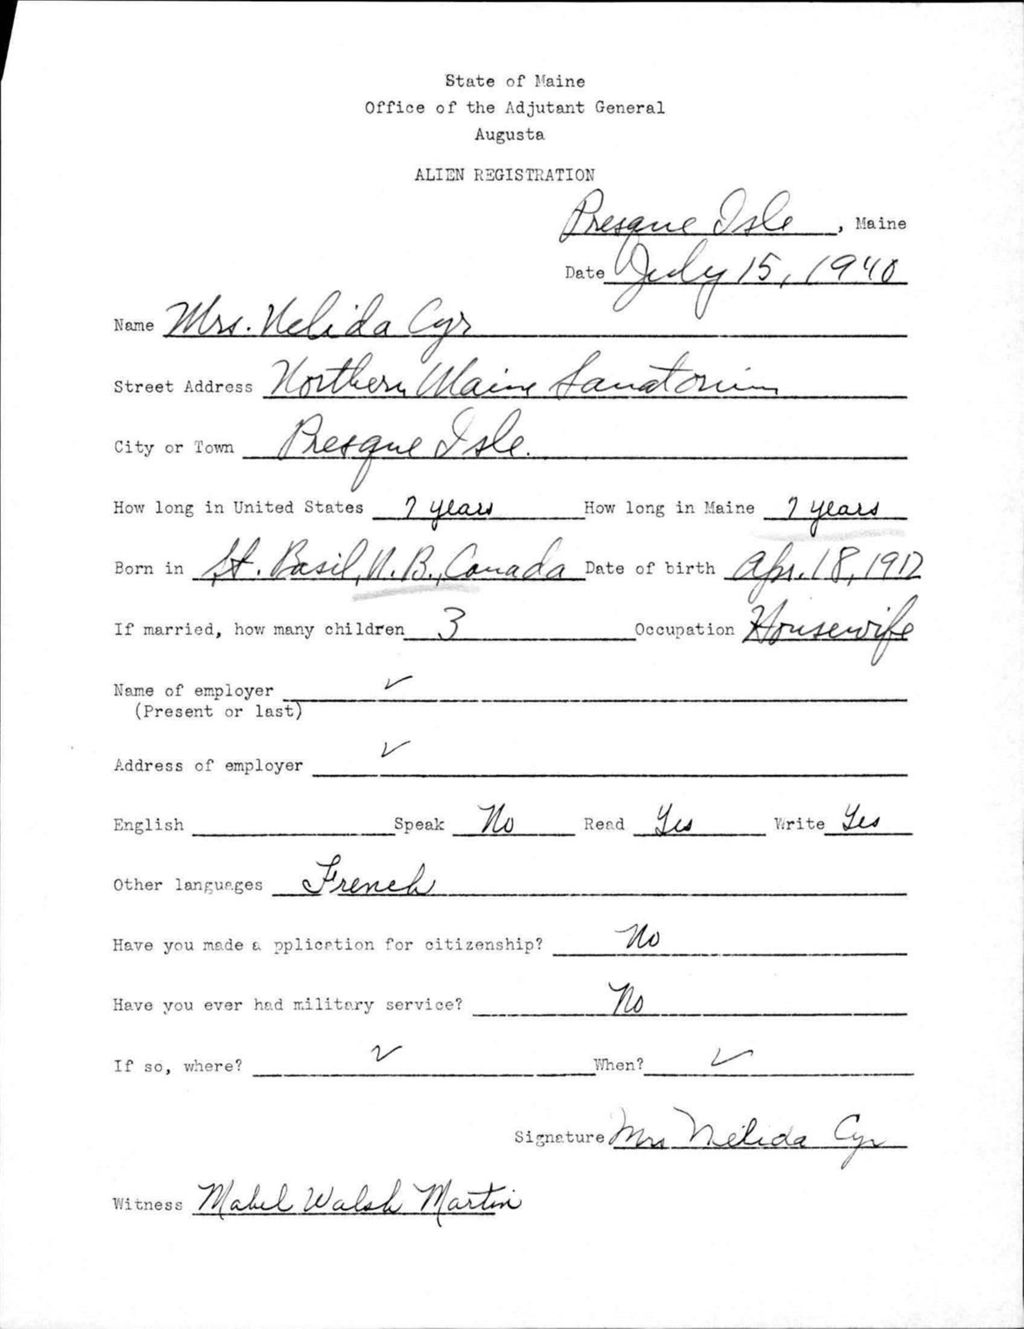 State of Maine
Office of the Adjutant General
Augusta
ALIEN REGISTRATION
Presque Isle, Maine
Date July 15, 1940
Name Mrs. Nelida Cyr
Street Address Northern Maine Sanatorium
City or Town Presque Isle.
How long in United States 7 years How long in Maine 7 years
Born in St. Basil, N.B., Canada Date of birth Apr. 18, 1912
If married, how many children 3 Occupation Housewife
Name of employer ✓
(Present or last)
Address of employer ✓
English Speak No Read Yes Write Yes
Other languages French
Have you made a pplication for citizenship? No
Have you ever had military service? No
If so, where? ✓ When? ✓
Signature Mrs Nelida Cyr
Witness Mabel Walsh Martin